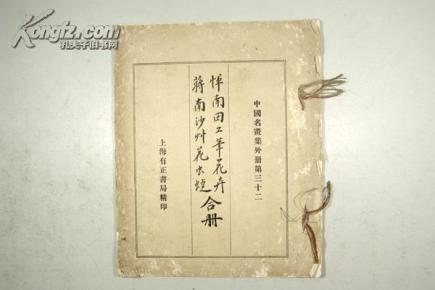 中國名畫集外册第三十二
惲南田工筆花卉
蔣南沙艸花虫蝶
合册
上海有正書局精印
Kongfz.com
孔夫子旧书网